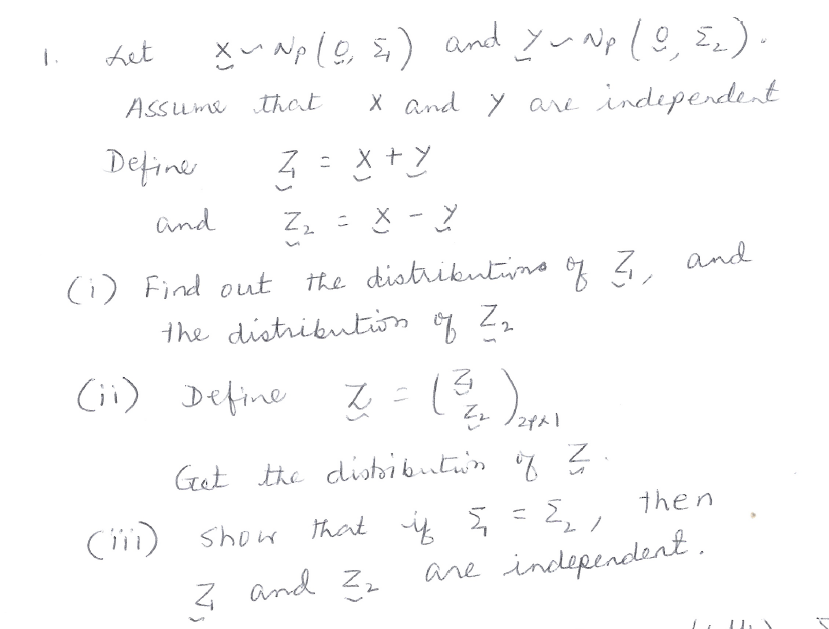 1. Let X ~ Np(0, Σ1) and Y ~ Np(0, Σ2).
Assume that X and Y are independent
Define Z1 = X + Y
and Z2 = X - Y
(i) Find out the distributions of Z1, and
the distribution of Z2
(ii) Define Z = (Z1 Z2)2p×1
Get the distribution of Z.
(iii) Show that if Σ1 = Σ2, then
Z1 and Z2 are independent.